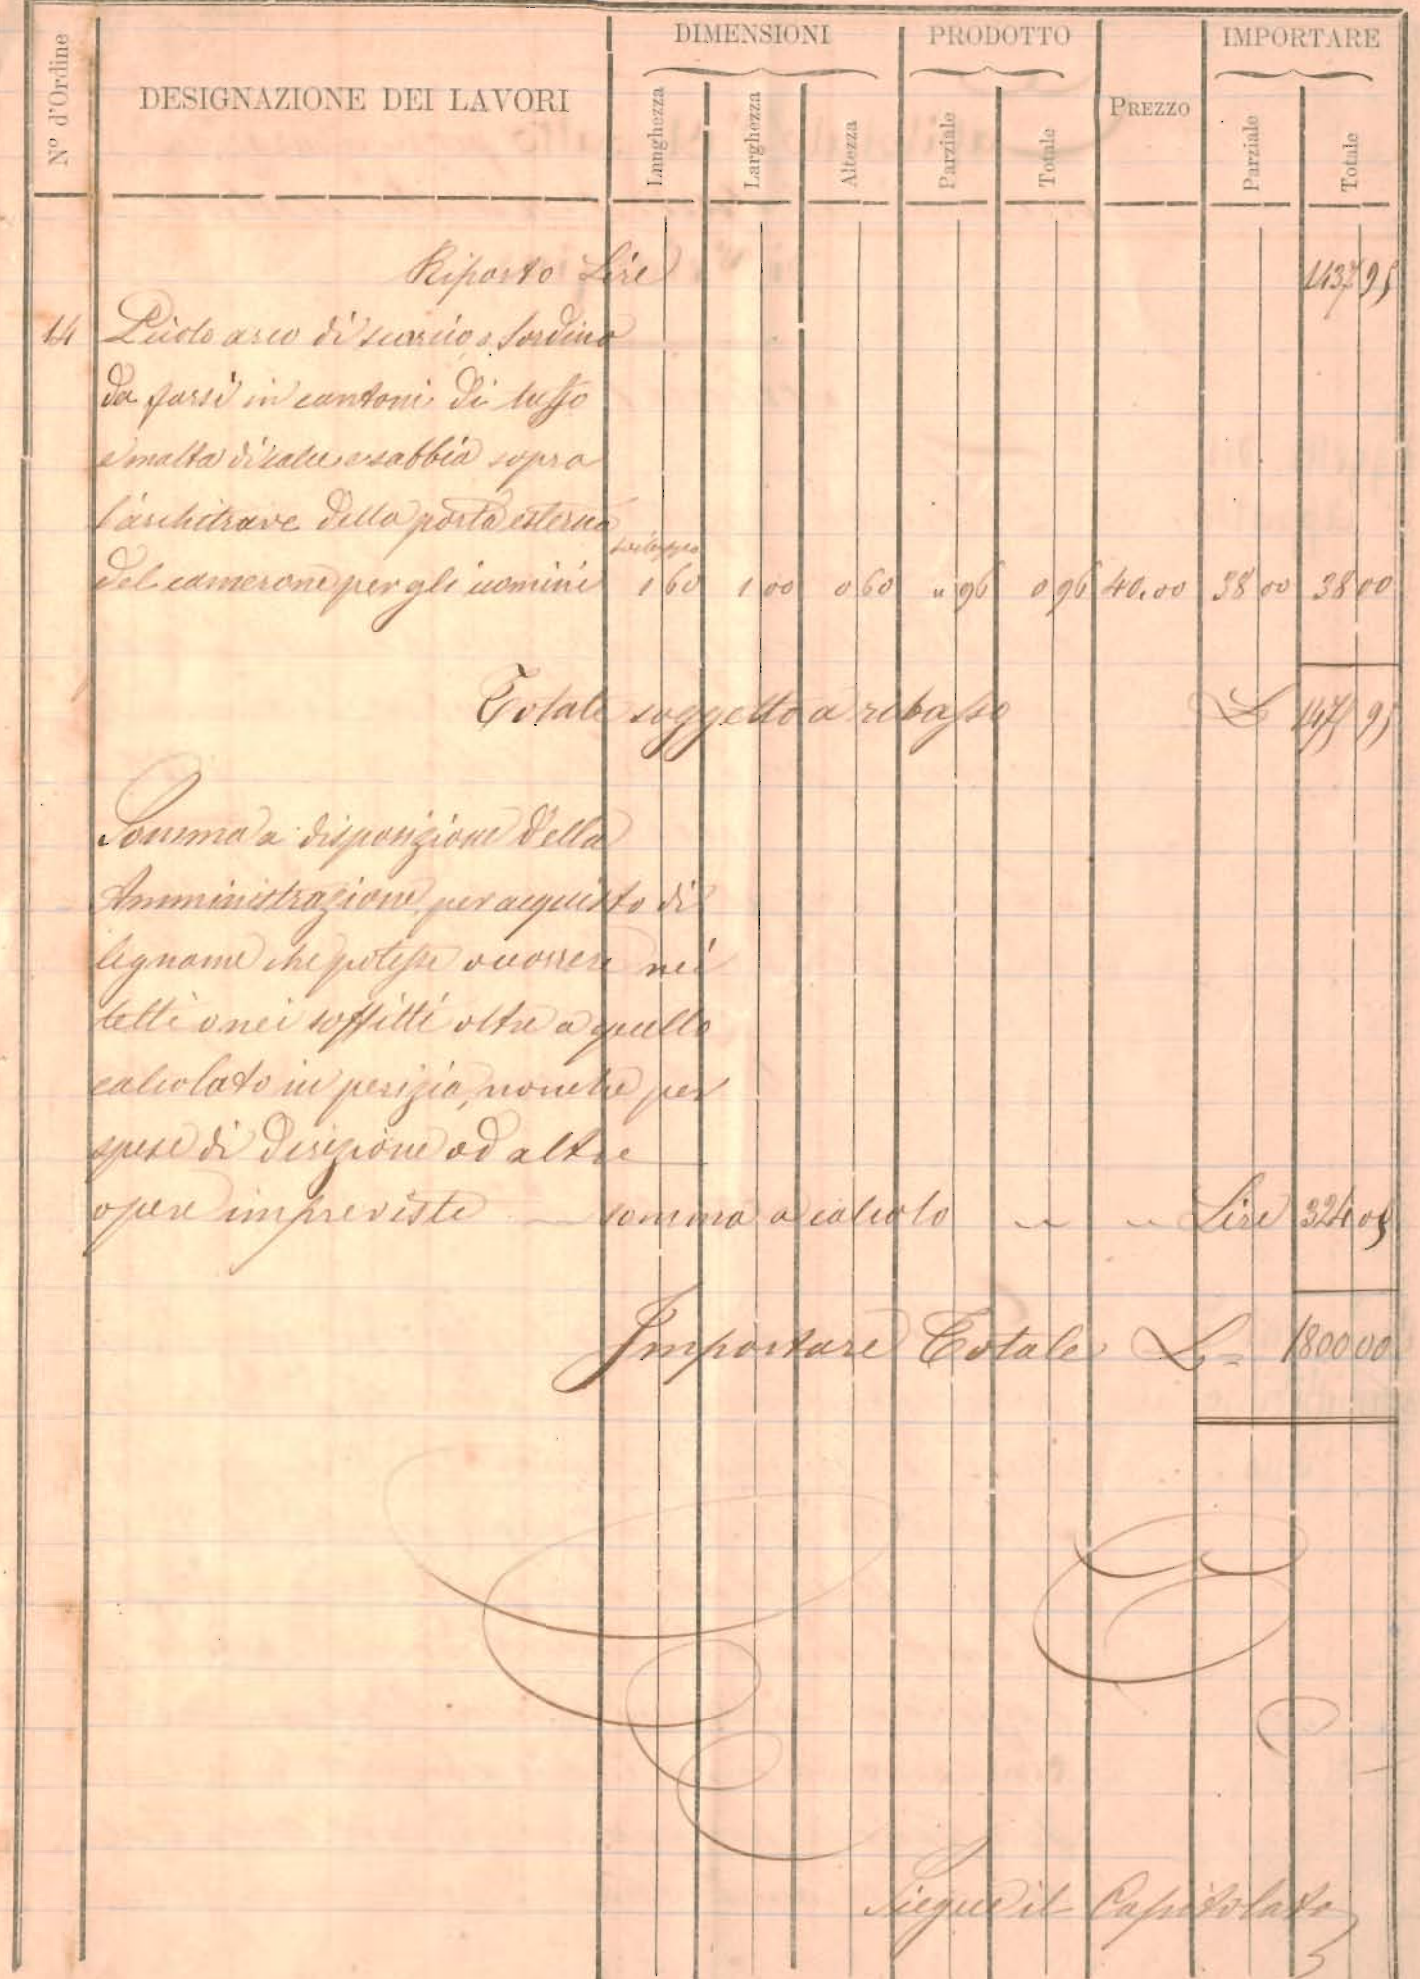 N° d'Ordine
DESIGNAZIONE DEI LAVORI
DIMENSIONI
Lunghezza
Larghezza
Altezza
PRODOTTO
Parziale
Totale
PREZZO
IMPORTARE
Parziale
Totale
Riporto Lire 1437 95
14 Piccolo arco di scarico o sordino
da farsi in cantoni di tuffo
e malta di calce e sabbia sopra
l'architrave della porta esterna
sviluppo
del camerone per gli uomini 1 60 1 00 0 60 " 96 0 96 40.00 38 00 38 00
Totale soggetto a ribasso L 1475 95
Somma a disposizione della
Amministrazione per acquisto di
legname che potesse occorrere nei
tetti o nei soffitti oltre a quello
calcolato in perizia, nonche per
spese di direzione ad altre
opere impreviste — somma a calcolo " " Lire 324 05
Importare Totale L= 1800 00
Siegue il Capitolato